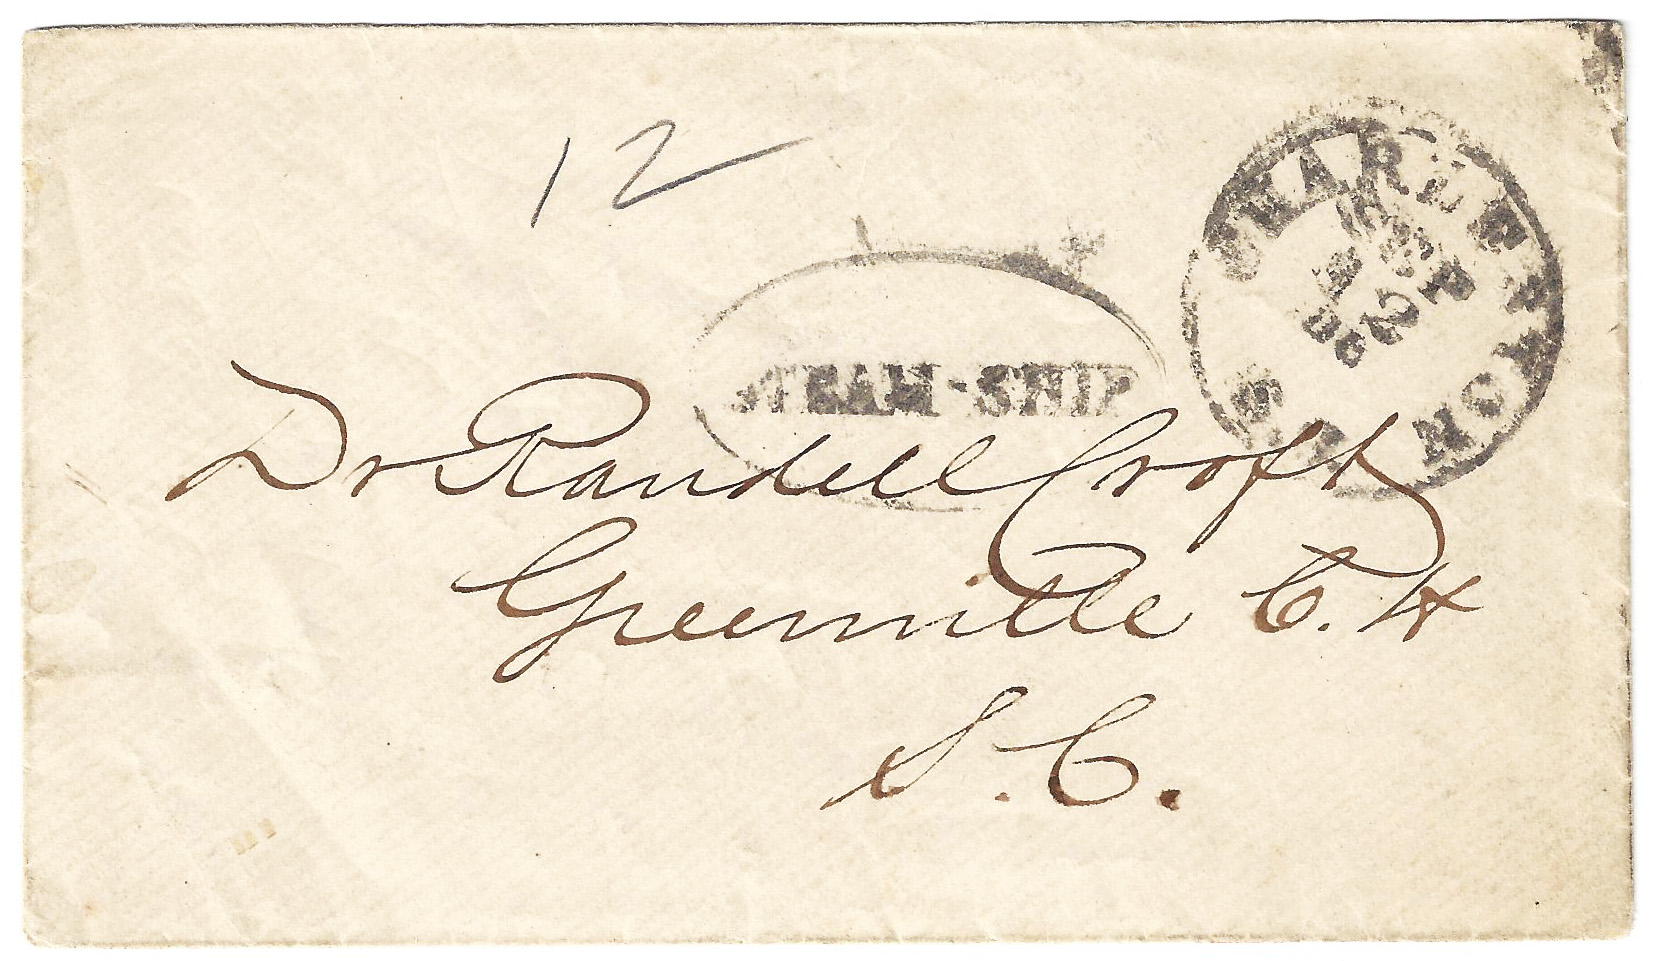 12
CHARLESTON
S.C.
SEP
2
STEAM-SHIP
Dr Randell Croft
Greenville C. H
S. C.